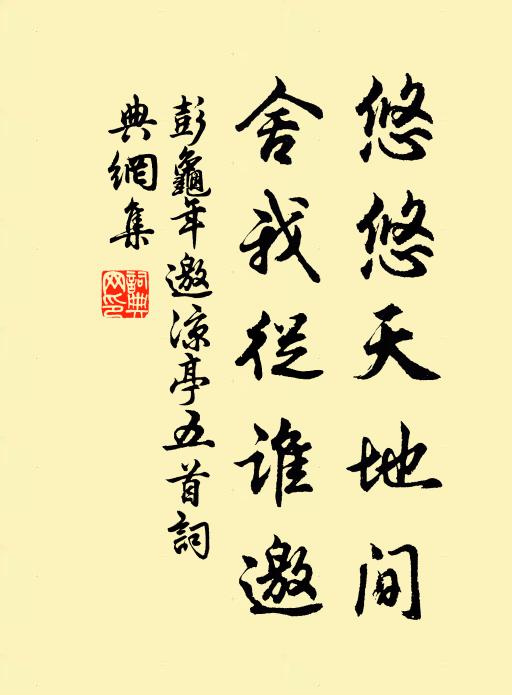 悠悠天地間
舍我從誰邀
彭龜年邀涼亭五首詞
典網集
詞典網印